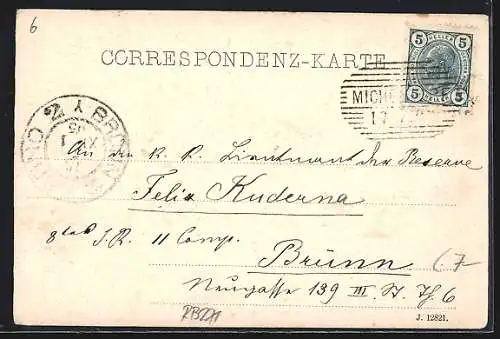 6
CORRESPONDENZ-KARTE
5 HELLER 5
5 HELLER 5
MICHE
BRÜNN
An den K. K. Lieutnant der Reserve
Felix Kuderna
8tes I.R. 11 Comp.
Brünn
Neugasse 139 III. St. Th. 6
J. 12821.